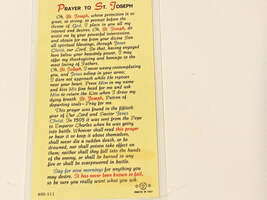 PRAYER TO ST. JOSEPH
Oh, St. Joseph, whose protection is so
great, so strong, so prompt before the
throne of God, I place in you all my
interest and desires. Oh, St. Joseph, do
assist me by your powerful intercession,
and obtain for me from your divine Son
all spiritual blessings, through Jesus
Christ, our Lord. So that, having engaged
here below your heavenly power, I may
offer my thanksgiving and homage to the
most loving of Fathers.
Oh, St. Joseph, I never weary contemplating
you, and Jesus asleep in your arms;
I dare not approach while He reposes
near your heart. Press Him in my name
and kiss His fine head for me and ask
Him to return the Kiss when I draw my
dying breath. St. Joseph, Patron of
departing souls - Pray for me.
This prayer was found in the fiftieth
year of Our Lord and Savior Jesus
Christ. In 1505 it was sent from the Pope
to Emperor Charles when he was going
into battle. Whoever shall read this prayer
or hear it or keep it about themselves,
shall never die a sudden death, or be
drowned, nor shall poison take effect on
them; neither shall they fall into the hands
of the enemy, or shall be burned in any
fire or shall be overpowered in battle.
Say for nine mornings for anything you
may desire. It has never been known to fail,
so be sure you really want what you ask.